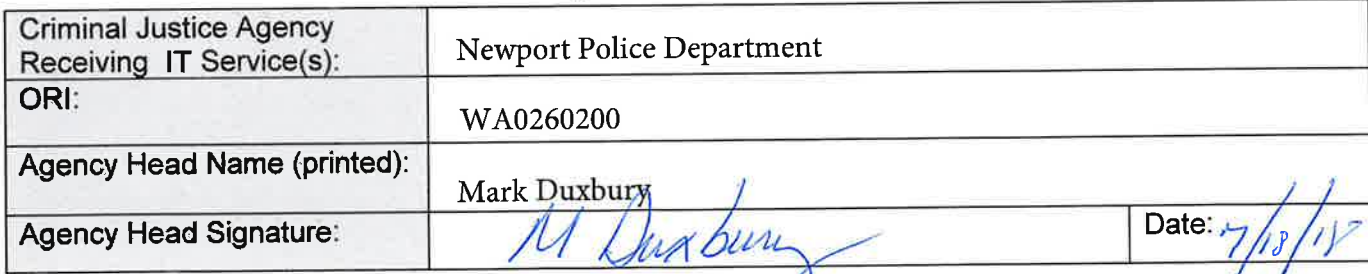 Criminal Justice Agency
Receiving IT Service(s):
Newport Police Department
ORI:
WA0260200
Agency Head Name (printed):
Mark Duxbury
Agency Head Signature:
M Duxbury
Date: 7/18/18